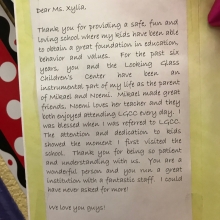 Dear Ms. Xyllia,
Thank you for providing a safe, fun and
loving school where my kids have been able
to obtain a great foundation in education,
behavior and values. For the past six
years, you and the Looking Glass
Children's Center have been an
instrumental part of my life as the parent
of Mikael and Noemi. Mikael made great
friends, Noemi loves her teacher and they
both enjoyed attending LGCC every day. I
was blessed when I was referred to LGCC.
The attention and dedication to kids
showed the moment I first visited the
school. Thank you for being so patient
and understanding with us. You are a
wonderful person and you run a great
institution with a fantastic staff. I could
have never asked for more!
We love you guys!